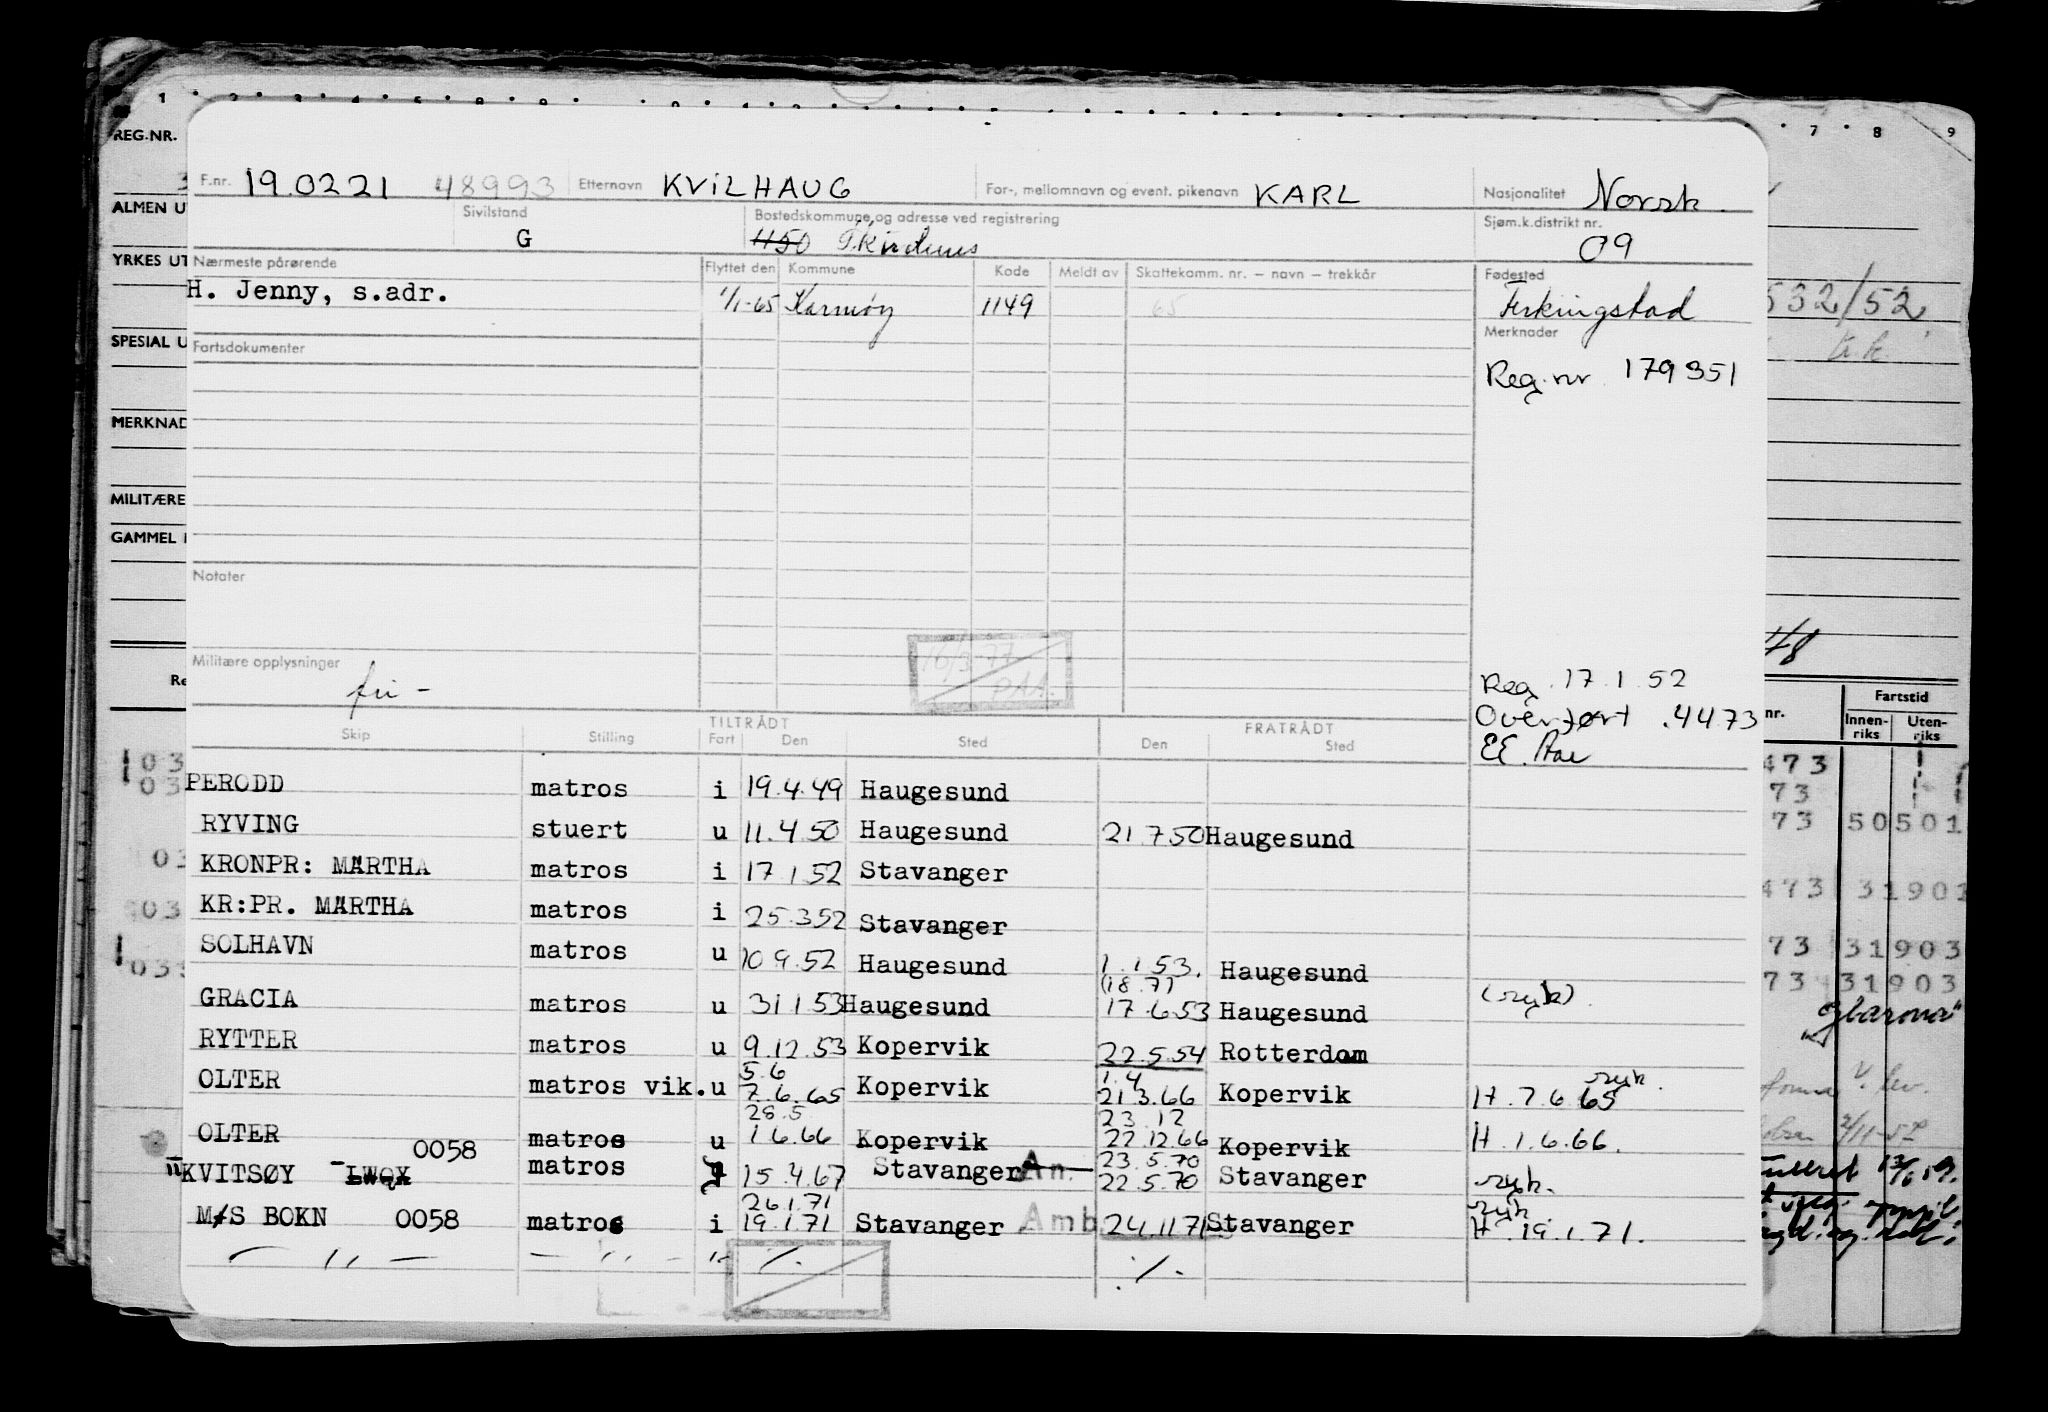 REG.NR.
F.nr. 19.0221 48993 Etternavn KVILHAUG For-, mellomnavn og event. pikenavn KARL Nasjonalitet Norsk.
ALMEN U
Sivilstand G Bostedskommune og adresse ved registrering 1150 Skudenes Sjøm.k.distrikt nr. 09
YRKES UT
Nærmeste pårørende Flyttet den Kommune Kode Meldt av Skattekomm. nr. – navn – trekkår Fødested
H. Jenny, s.adr. 1/1-65 Karmøy 1149 65 Ferkingstad
532/52
SPESIAL U
Fartsdokumenter Merknader
Reg.nr 179351
MERKNAD
MILITÆRE
GAMMEL
Notater
16/3-77
PAA.
Militære opplysninger
fri -
Reg. 17.1.52
Overført .4473
EE. Aae
48
TILTRÅDT FRATRÅDT
Skip Stilling Fart Den Sted Den Sted
nr. Fartstid
Innenriks Utenriks
PERODD matros i 19.4.49 Haugesund
RYVING stuert u 11.4.50 Haugesund 21.7.50 Haugesund
KRONPR: MÄRTHA matros i 17.1.52 Stavanger
KR:PR. MÄRTHA matros i 25.3.52 Stavanger
SOLHAVN matros u 10.9.52 Haugesund 1.1.53. Haugesund
(18.7)
GRACIA matros u 31.1.53 Haugesund 17.6.53 Haugesund (syk).
RYTTER matros u 9.12.53 Kopervik 22.5.54 Rotterdam
5.6 1.4 syk.
OLTER matros vik. u 7.6.65 Kopervik 21.3.66 Kopervik H 7.6.65
28.5 23.12
OLTER matros u 1.6.66 Kopervik 22.12.66 Kopervik H.1.6.66.
0058 23.5.70
"KVITSØY LWQX matros i 15.4.67 Stavanger An. 22.5.70 Stavanger syk.
26.1.71 syk
M/S BOKN 0058 matros i 19.1.71 Stavanger Amb 24.11.71 Stavanger H.19.1.71.
— " — — " — " ./. ./.
473
73
73 50501
473 31901
73 31903
73 31903